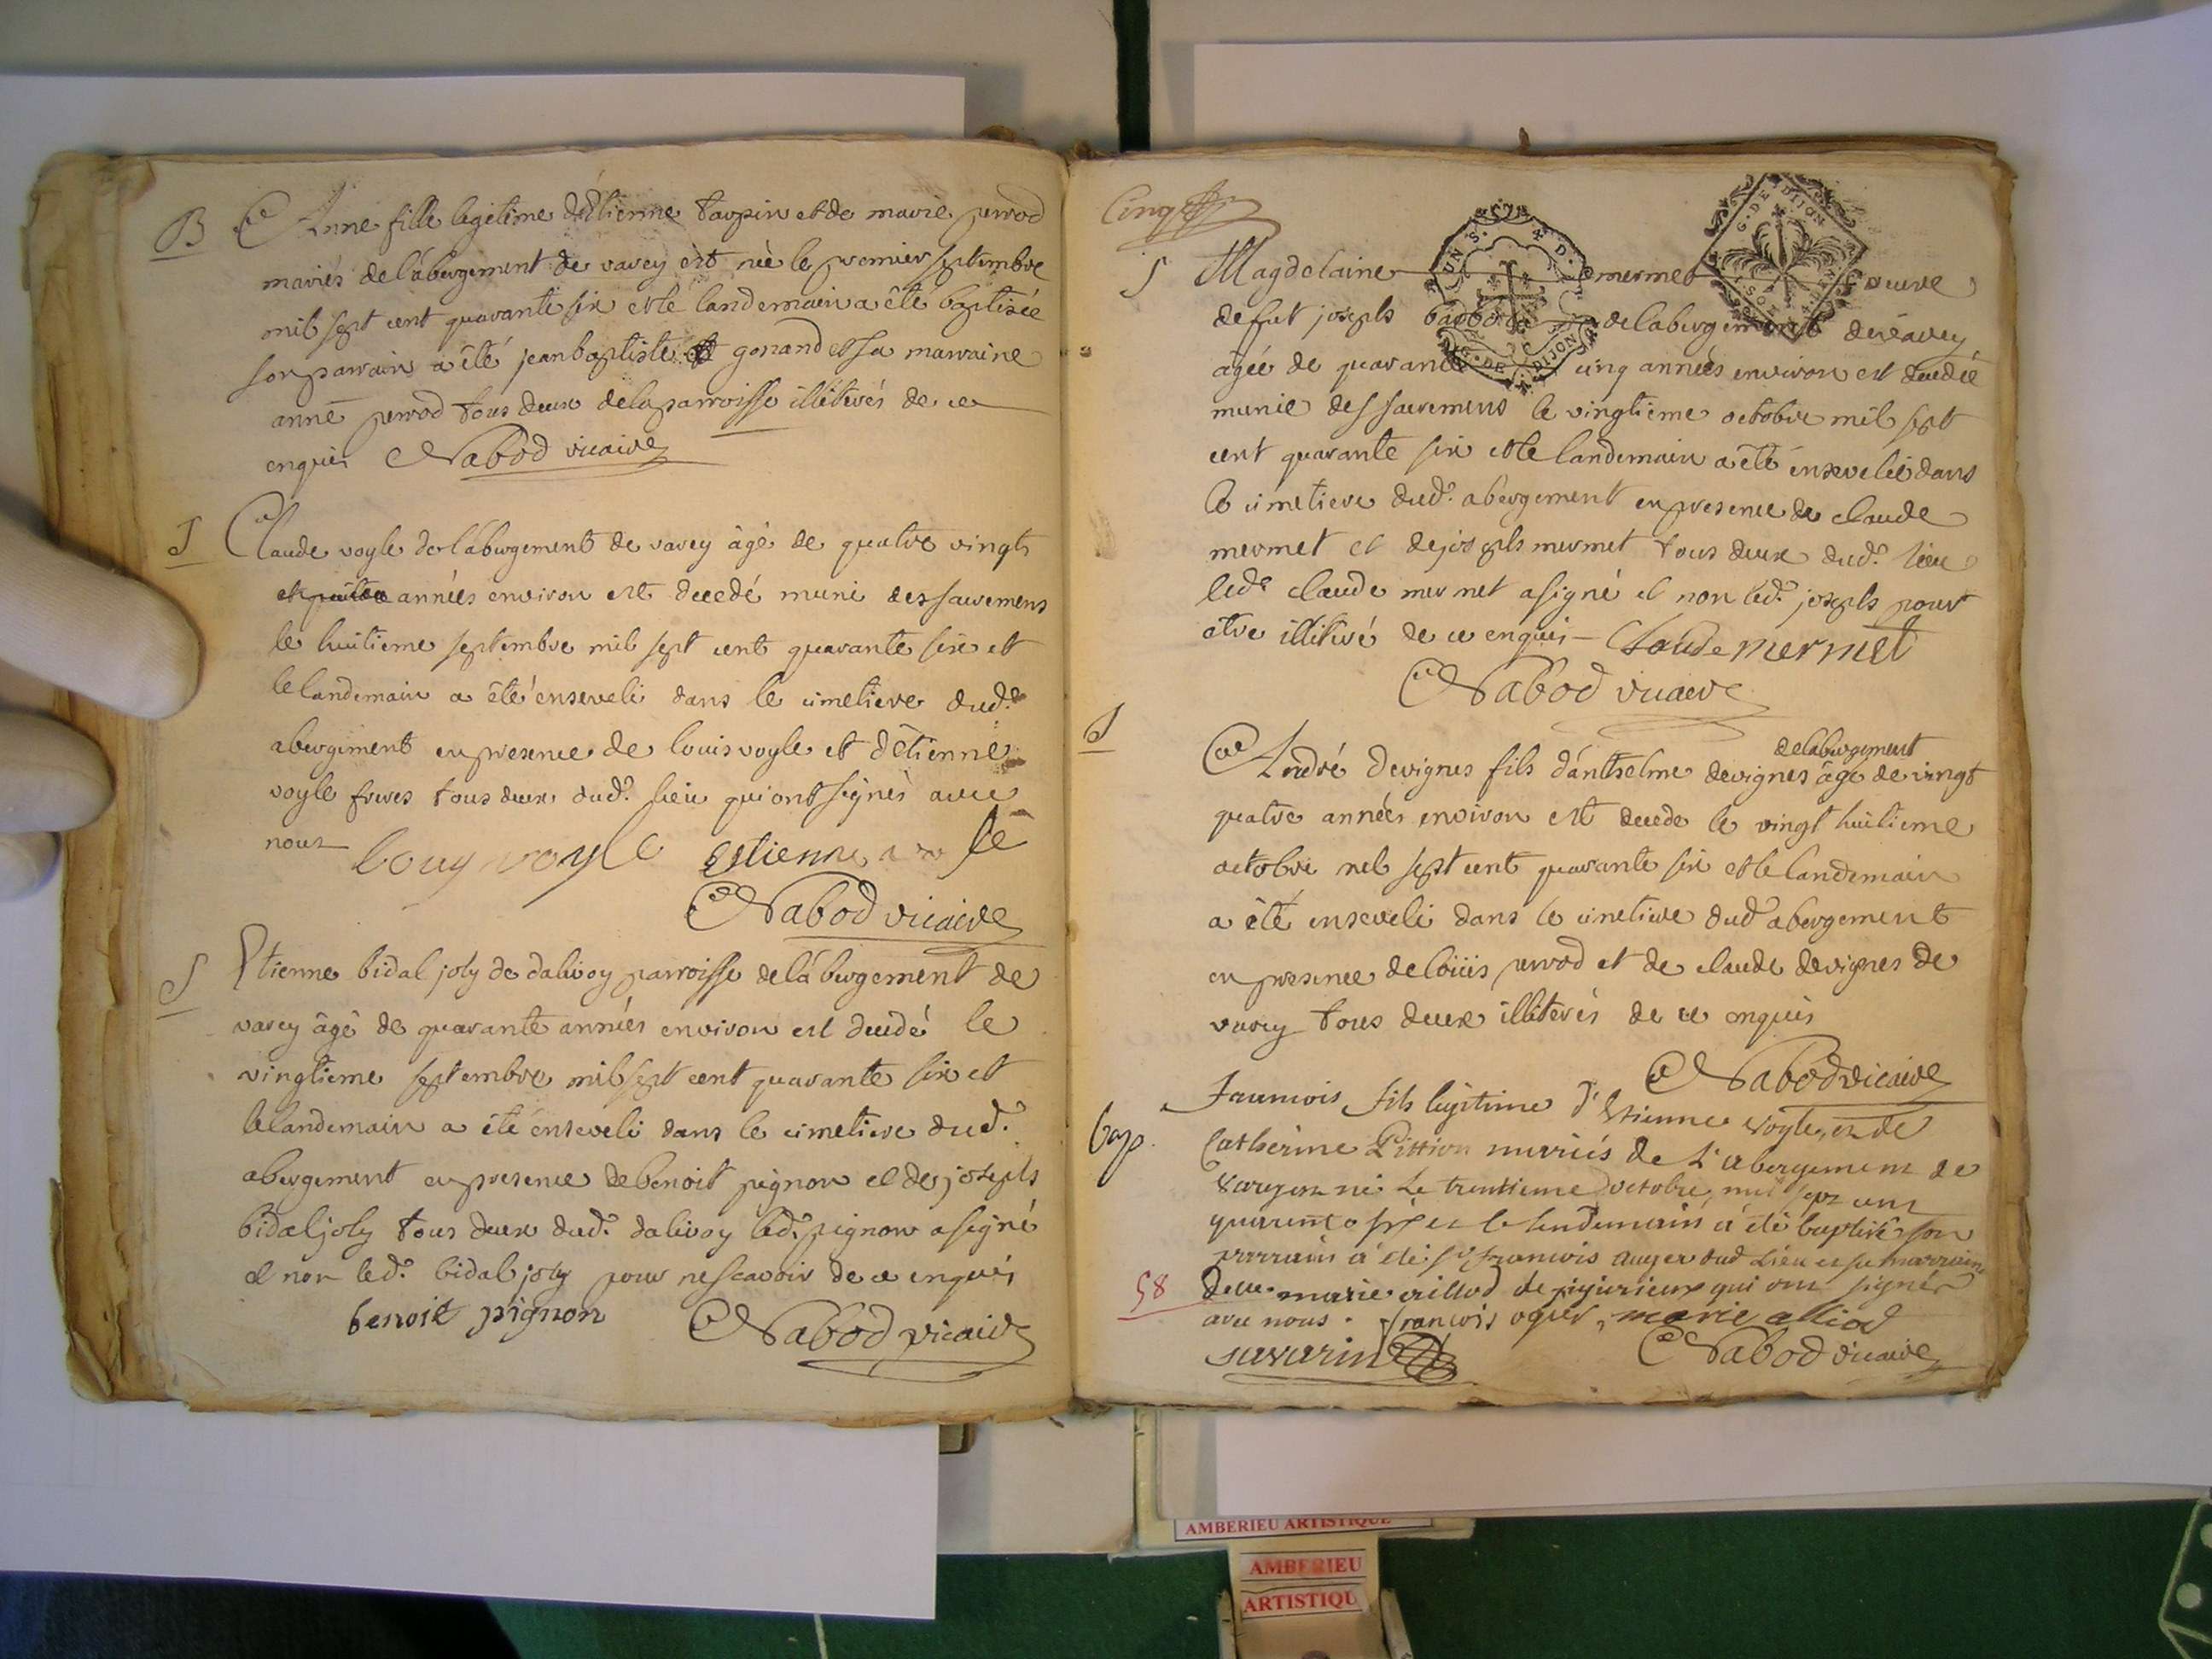 B Anne fille legitime d'Etienne taupin et de marie perrod
mariés de l'abergement de varey est née le premier septembre
mil sept cent quarante six et le landemain a été baptisée
son parrain a été jean baptiste gonand et sa marraine
anne perrod tous deux de la parroisse illiterés de ce
enquis Nabod vicaire
S Claude voyle de l'abergement de varey âgé de quatre vingts
années environ est decedé muni des sacremens
le huitieme septembre mil sept cent quarante six et
le landemain a été enseveli dans le cimetiere dud.
abergement en presence de louis voyle et d'étienne
voyle freres tous deux dud. lieu qui ont signés avec
nous louy voyle estienne
Nabod vicaire
S Etienne bidal joly de dalivoy parroisse de l'abergement de
varey âgé de quarante années environ est decedé le
vingtieme septembre mil sept cent quarante six et
le landemain a été enseveli dans le cimetiere dud.
abergement en presence de benoit pignon et de joseph
bidal joly tous deux dud. dalivoy led. pignon a signé
et non led. bidal joly pour ne scavoir de ce enquis
benoit pignon Nabod vicaire
Cinq
S Magdelaine mermet veuve
de fut joseph de l'abergement de varey
âgée de quarante cinq années environ est decedée
munie des sacremens le vingtieme octobre mil sept
cent quarante six et le landemain a été ensevelie dans
le cimetiere dud. abergement en presence de claude
mermet et de joseph mermet tous deux dud. lieu
led. claude mermet a signé et non led. joseph pour
etre illiteré de ce enquis - Claude mermet
Nabod vicaire
S
de l'abergement
André devignes fils d'anthelme devignes âgé de vingt
quatre années environ est decede le vingt huitieme
octobre mil sept cent quarante six et le landemain
a été enseveli dans le cimetiere dud. abergement
en presence de loüis perrod et de claude devignes de
varey tous deux illiterés de ce enquis
Nabod vicaire
francois fils legitime d'Etienne voyle, et de
bap. Catherine Pittion mariés de L'abergement de
Varey est né Le trentieme octobre, mil sept cent
quarante six et le lendemain a été baptisé son
parrain a été sr. francois auger dud. Lieu et sa marraine
58 delle. marie de jujurieux qui ont signés
avec nous. francois ogier, marie alliod
savarin Nabod vicaire
G. DE DIJON
G. DE DIJON
AMBERIEU ARTISTIQUE
AMBERIEU
ARTISTIQU